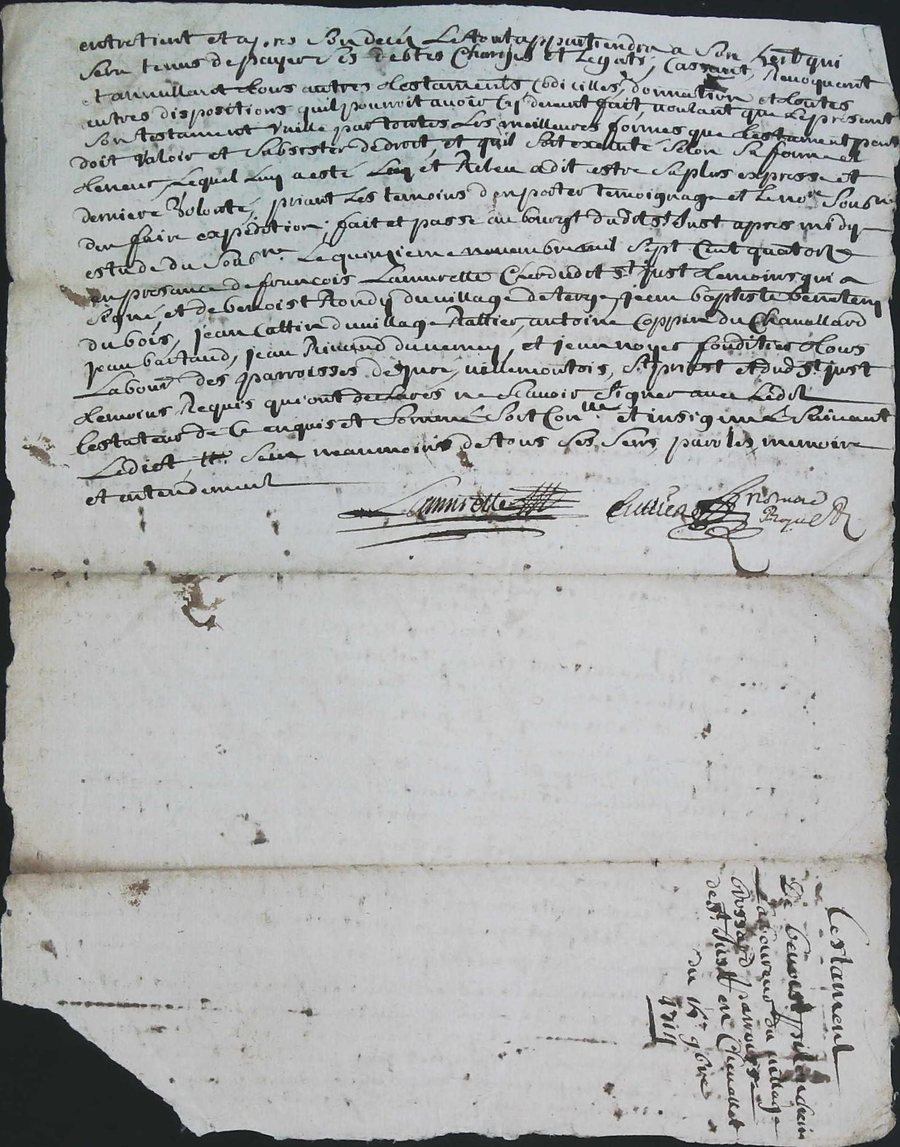 entretient et apres son decéz Le tout appartiendra a son heritr qui
sera tenus de payer ses debtes Charges et Legats, Cassant, Revoquant
et annullant tous autres testaments, Codicilles, donnation et toutes
autres dispositions quil pourroit avoir Cy devant fait voulant que Le present
son testament vaille par toutes Les meilleures formes que testament peut
doit valoir et subsister de droit et quil soit executé selon sa forme et
teneur, Lequel Luy a esté Leu et Releu a dit estre sa plus expresse et
derniere volonté, priant Les temoins d'en porter temoignage et Le nore sousne
d'en faire expedition, fait et passé au bourgt dudit st Just apres midy
estude du sousne Le quinzieme novembre mil sept Cent quatorze
en presance de françois Lamurette Clerc dudit st Just temoins qui a
signé et de benoist Rondy du village de terge, Jean baptiste
du bois, Jean Cattin du village Rattier, antoine Coppin du Chavallard
Jean bartaud, Jean du verney, et Jean noyer tous
Labourrs des parroisses de villemontois, st priest et dudt st Just
temoins Requis qui ont declarés ne sçavoir signer avec Ledit
testateur de Ce enquis et sommé soit Conlle et insigné Suivant
Ledict, sein neanmoins de tous ses sens, parolle, memoire
et entendement
Lamurette
Testament
de benoist
Laboureur du village
parroisse
de st Just en Chevallet
du 15e 9bre
1714